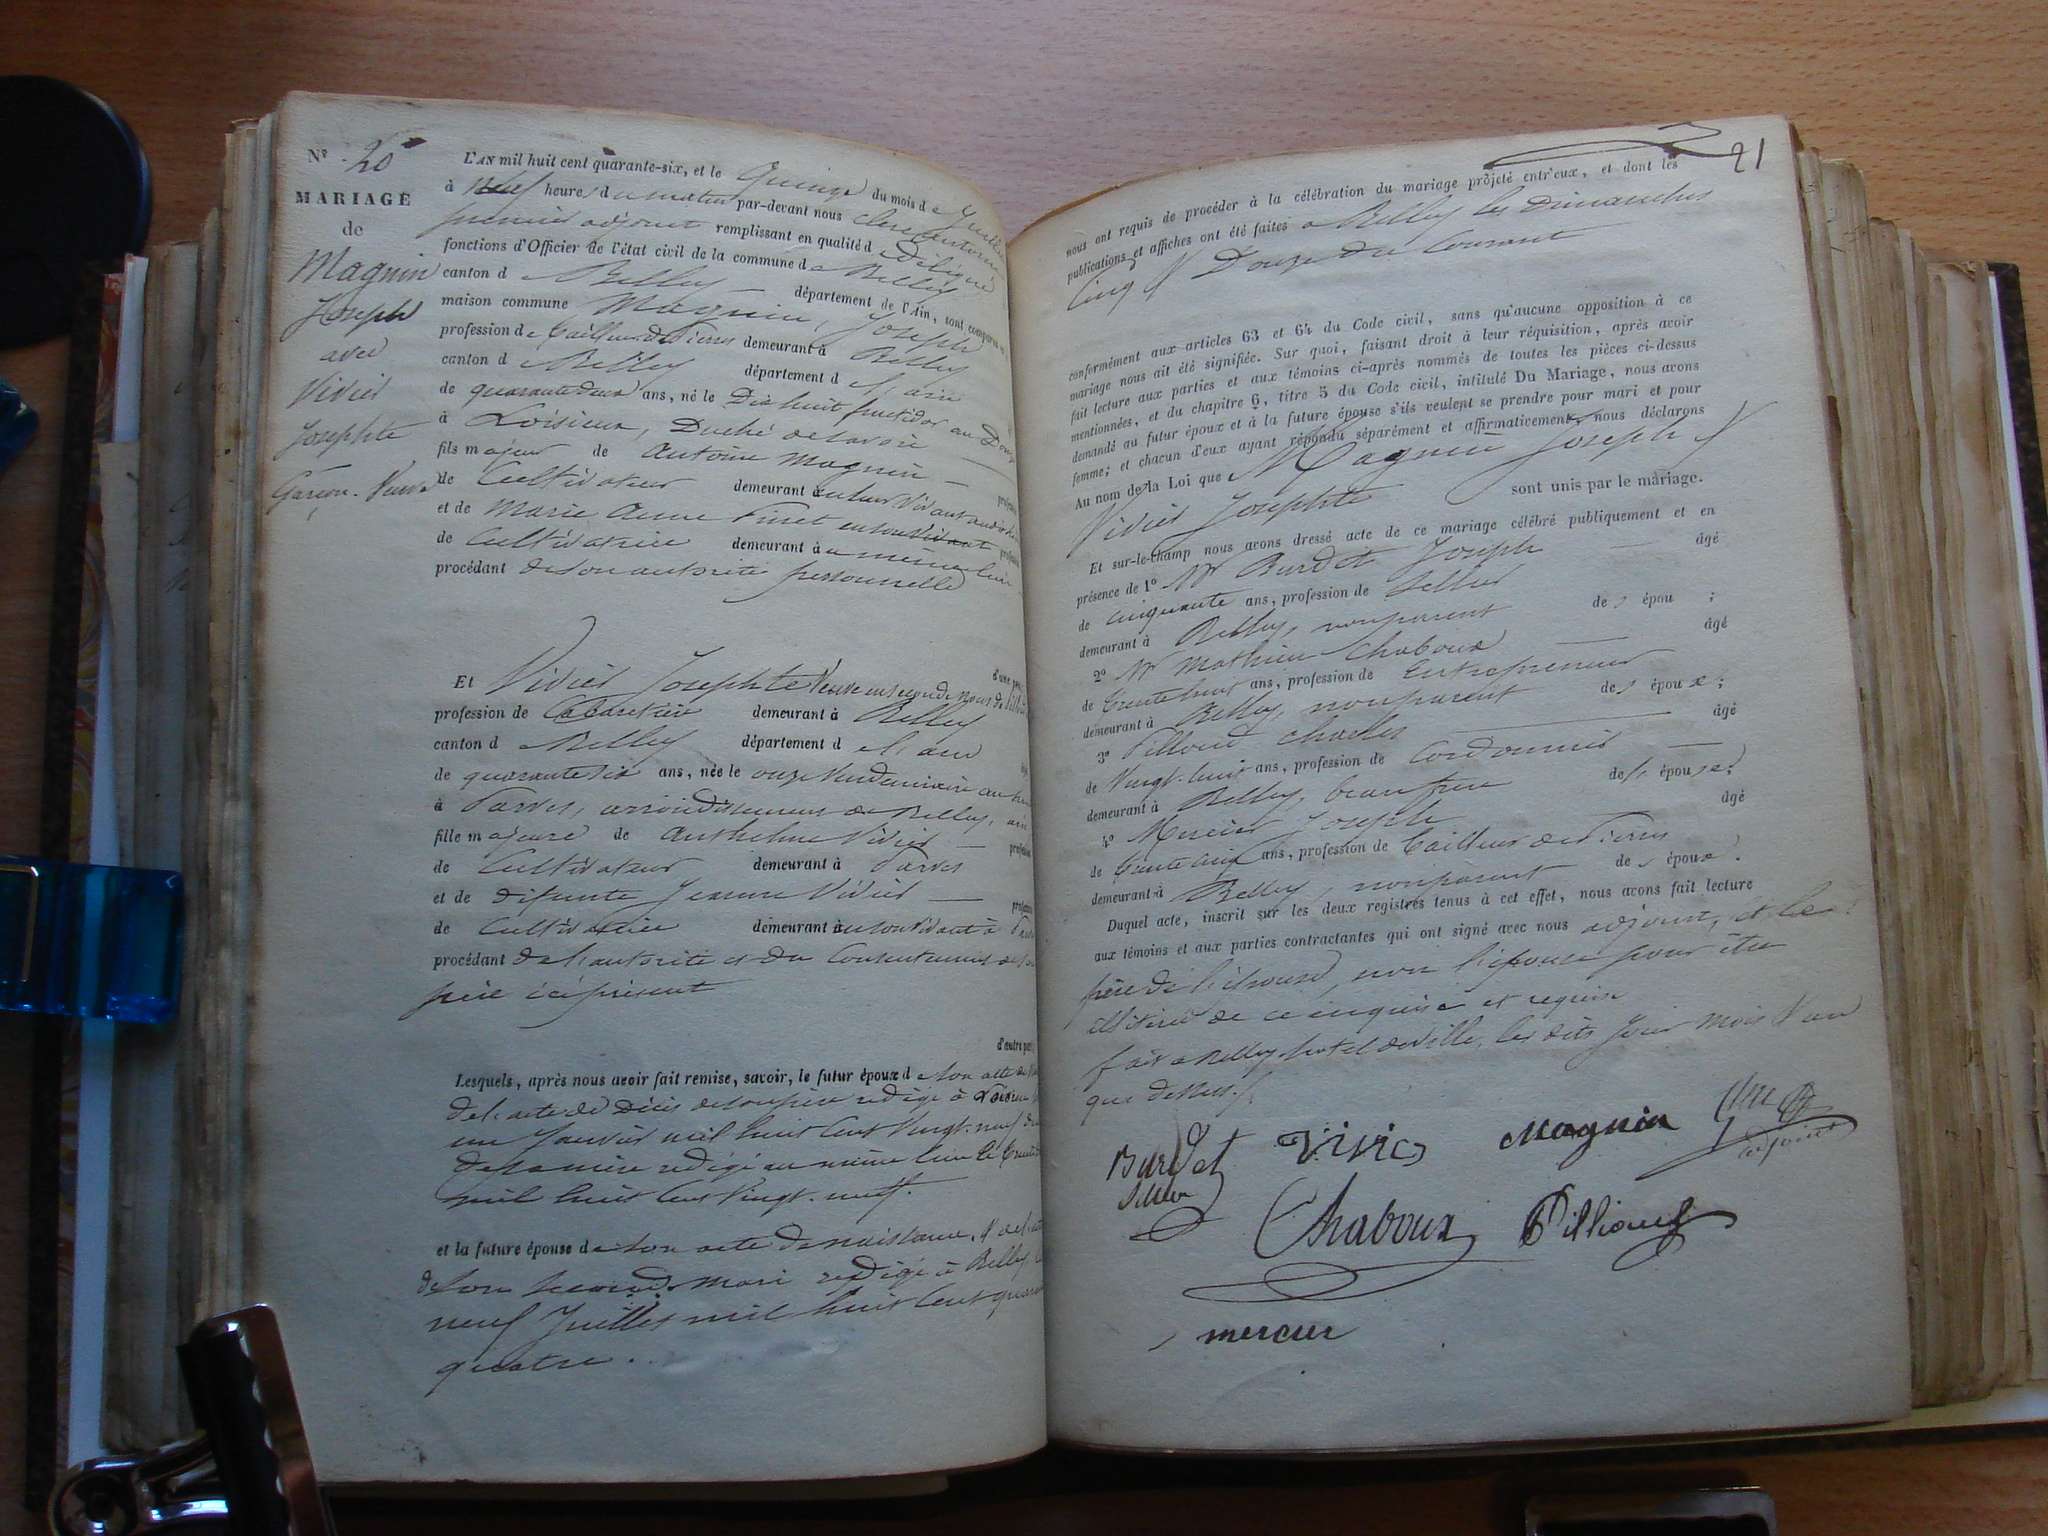 Nº 20
MARIAGE
de
Magnin
Joseph
avec
Vivier
Josephte
Garçon. Veuve
L'AN mil huit cent quarante-six, et le Quinze du mois de Juillet
à neuf heures du matin par-devant nous Clerc antoine
premier adjoint remplissant en qualité de délégué
fonctions d'Officier de l'état civil de la commune de Belley
canton de Belley département de l'Ain, sont comparus
maison commune Magnin, Joseph
profession de tailleur de Pierres demeurant à Belley
canton de Belley département de l'ain
de quarante deux ans, né le Dix huit fructidor an Douze
à Loisieux, Duché de Savoie
fils majeur de antoine Magnin
de Cultivateur demeurant de son vivant audit lieu
et de Marie anne en son vivant
de Cultivatrice demeurant au même lieu
procédant de son autorité personnelle
d'une part
Et Vivier Josephte Veuve en secondes noces de
profession de Cabaretière demeurant à Belley
canton de Belley département de l'ain
de quarante six ans, née le onze Vendemiaire an
à Parves, arrondissement de Belley, ain
fille majeure de anthelme Vivier
de Cultivateur demeurant à Parves
et de défunte Jeanne Vivier
de Cultivatrice demeurant en son vivant à Parves
procédant de l'autorité et du Consentement de son
père ici présent
d'autre part
Lesquels, après nous avoir fait remise, savoir, le futur époux de son acte de
de l'acte de décès de son père rédigé à Loisieux
un Janvier mil huit cent vingt-neuf
de sa mère rédigé au même lieu le trente
mil huit cent vingt-neuf.
et la future épouse de son acte de naissance, & de l'acte
de son second mari rédigé à Belley le
neuf Juillet mil huit cent quarante
quatre.
21
nous ont requis de procéder à la célébration du mariage projeté entr'eux, et dont les
publications et affiches ont été faites à Belley les Dimanches
Cinq & Douze du Courant
conformément aux articles 63 et 64 du Code civil, sans qu'aucune opposition à ce
mariage nous ait été signifiée. Sur quoi, faisant droit à leur réquisition, après avoir
fait lecture aux parties et aux témoins ci-après nommés de toutes les pièces ci-dessus
mentionnées, et du chapitre 6, titre 5 du Code civil, intitulé Du Mariage, nous avons
demandé au futur époux et à la future épouse s'ils veulent se prendre pour mari et pour
femme; et chacun d'eux ayant répondu séparément et affirmativement, nous déclarons
Au nom de la Loi que Magnin Joseph &
Vivier Josephte sont unis par le mariage.
Et sur-le-champ nous avons dressé acte de ce mariage célébré publiquement et en
présence de 1º Mr Burdet Joseph âgé
de cinquante ans, profession de Sellier
demeurant à Belley, non parent des épou ;
2º Mr Mathieu Chaboux âgé
de trente huit ans, profession de Entrepreneur
demeurant à Belley, non parent des époux;
3º Pilloud Charles âgé
de vingt-huit ans, profession de Cordonnier
demeurant à Belley, beau frère de l'épouse;
4º Mercier Joseph âgé
de trente cinq ans, profession de tailleur de Pierres
demeurant à Belley, non parent des époux.
Duquel acte, inscrit sur les deux registres tenus à cet effet, nous avons fait lecture
aux témoins et aux parties contractantes qui ont signé avec nous adjoint, et le
père de l'épouse, non l'épouse pour être
illitérée de ce enquise et requise
fait à Belley hotel de Ville, les dits Jour mois & an
que dessus.
Burdet
Sellier
Vivier
Magnin
adjoint
Chaboux
Pillioud
mercier